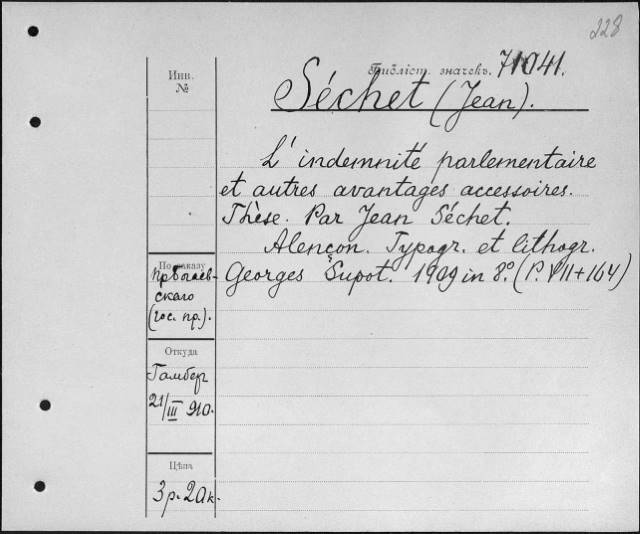 228
Библіот. значекъ. 71041.
Инв.
№
Séchet (Jean).
L'indemnité parlementaire
et autres avantages accessoires.
Thèse. Par Jean Séchet.
Alençon. Typogr. et lithogr.
Georges Supot. 1909 in 8.° (P. VII+164)
По заказу
скаго
(гос. пр.).
Откуда
Гамбер
21/III 910.
Цѣна
3 р. 20 к.